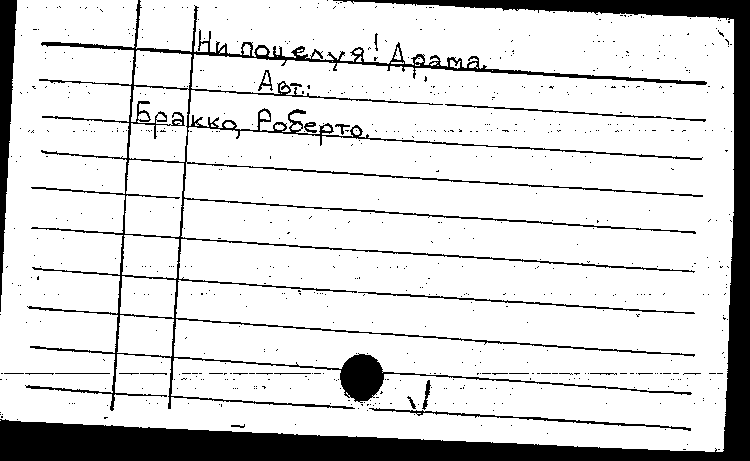 Ни поцелуя! Драма.
Авт.:
Бракко, Роберто.